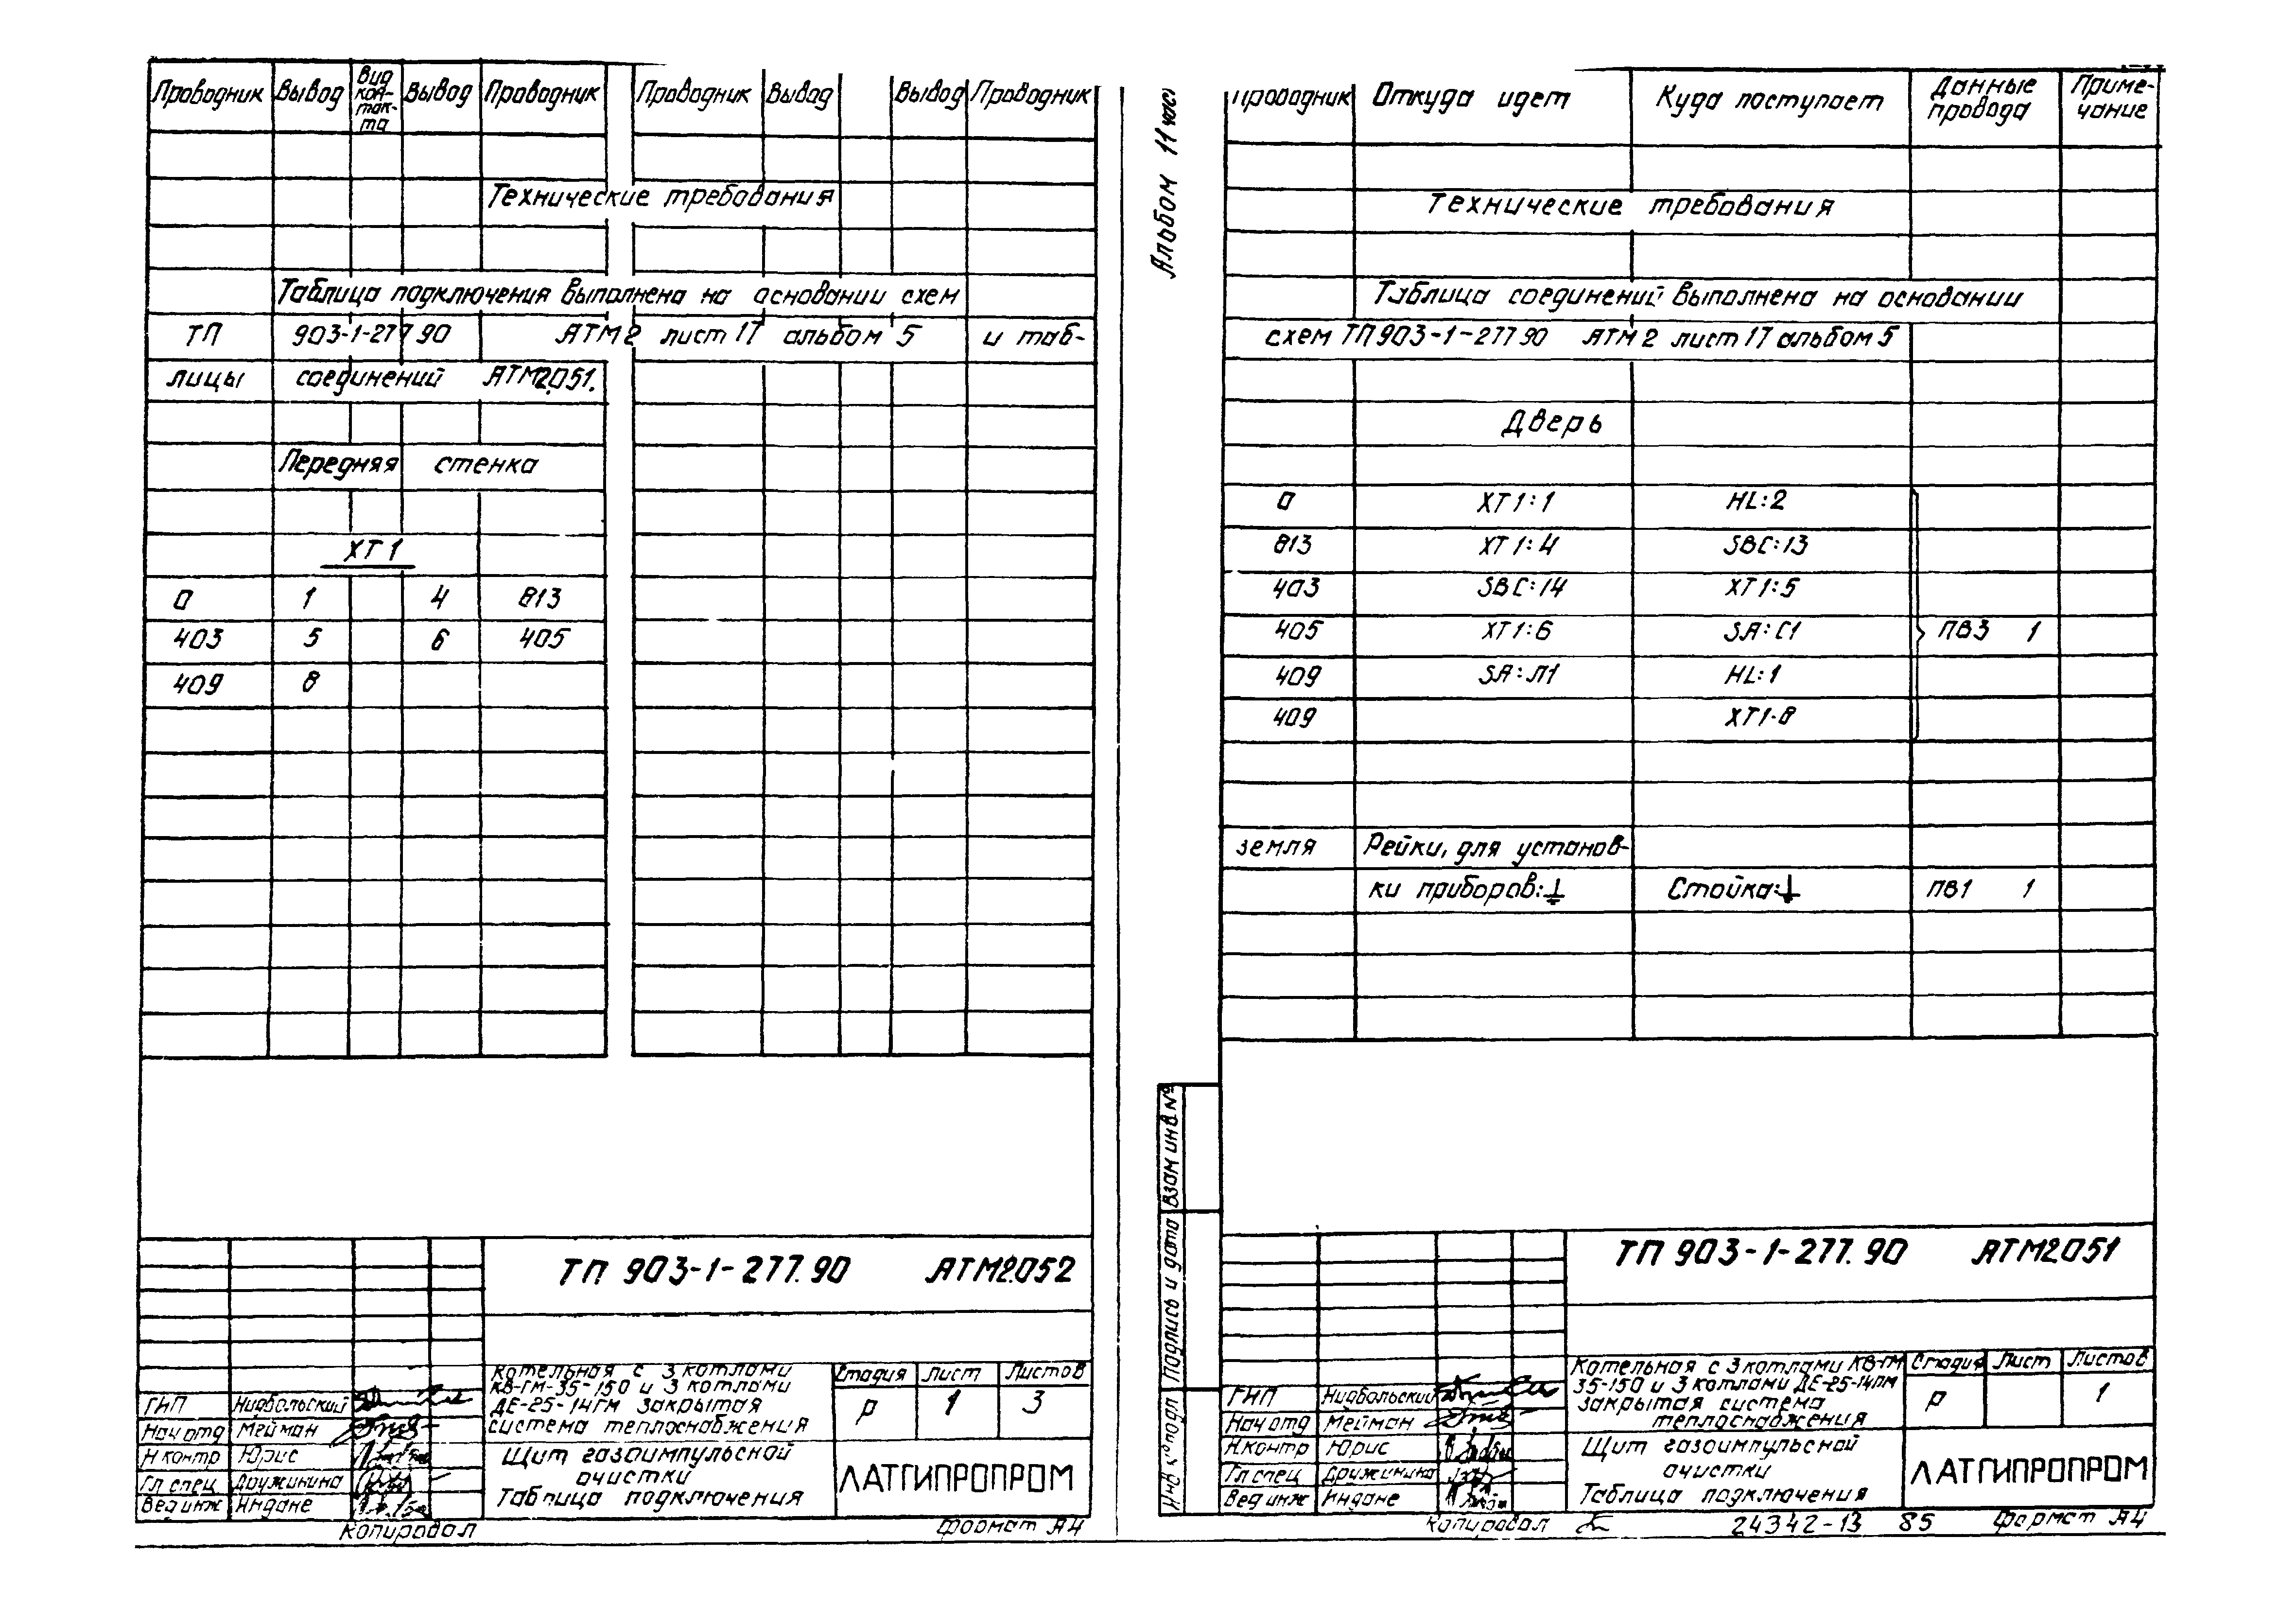 Проводник Вывод Вид кон-так-та Вывод Проводник Проводник Вывод Вывод Проводник
Технические требования
Таблица подключения выполнена на основании схем
ТП 903-1-277 90 АТМ2 лист 17 альбом 5 и таб-
лицы соединений АТМ2.051.
Передняя стенка
ХТ1
0 1 4 813
403 5 6 405
409 8
ТП 903-1-277.90 АТМ2.052
Котельная с 3 котлами
КВ-ГМ-35-150 и 3 котлами
ДЕ-25-14ГМ Закрытая
система теплоснабжения
Стадия Лист Листов
Р 1 3
ГИП Нидбольский
Нач отд Мейман
Н контр Юрис
Гл спец Дружинина
Вед инж Индане
Щит газоимпульсной
очистки
Таблица подключения
ЛАТГИПРОПРОМ
Копировал Формат А4
Альбом 11
Проводник Откуда идет Куда поступает Данные провода Приме-чание
Технические требования
Таблица соединений выполнена на основании
схем ТП 903-1-277 90 АТМ2 лист 17 альбом 5
Дверь
0 ХТ1:1 HL:2
813 ХТ1:4 SBC:13
403 SBC:14 ХТ1:5
405 ХТ1:6 SA:С1 ПВ3 1
409 SA:Л1 HL:1
409 ХТ1-8
земля Рейки, для установ-
ки приборов:⏚ Стойка:⏚ ПВ1 1
Взам инв №
Подпись и дата
Инв № подл
ТП 903-1-277.90 АТМ2.051
Котельная с 3 котлами КВ-ГМ
35-150 и 3 котлами ДЕ-25-14ГМ
закрытая система
теплоснабжения
Стадия Лист Листов
Р 1
ГИП Нидбольский
Нач отд Мейман
Н.контр Юрис
Гл спец Дружинина
Вед инж Индане
Щит газоимпульсной
очистки
Таблица подключения
ЛАТГИПРОПРОМ
Копировал 24342-13 85 Формат А4